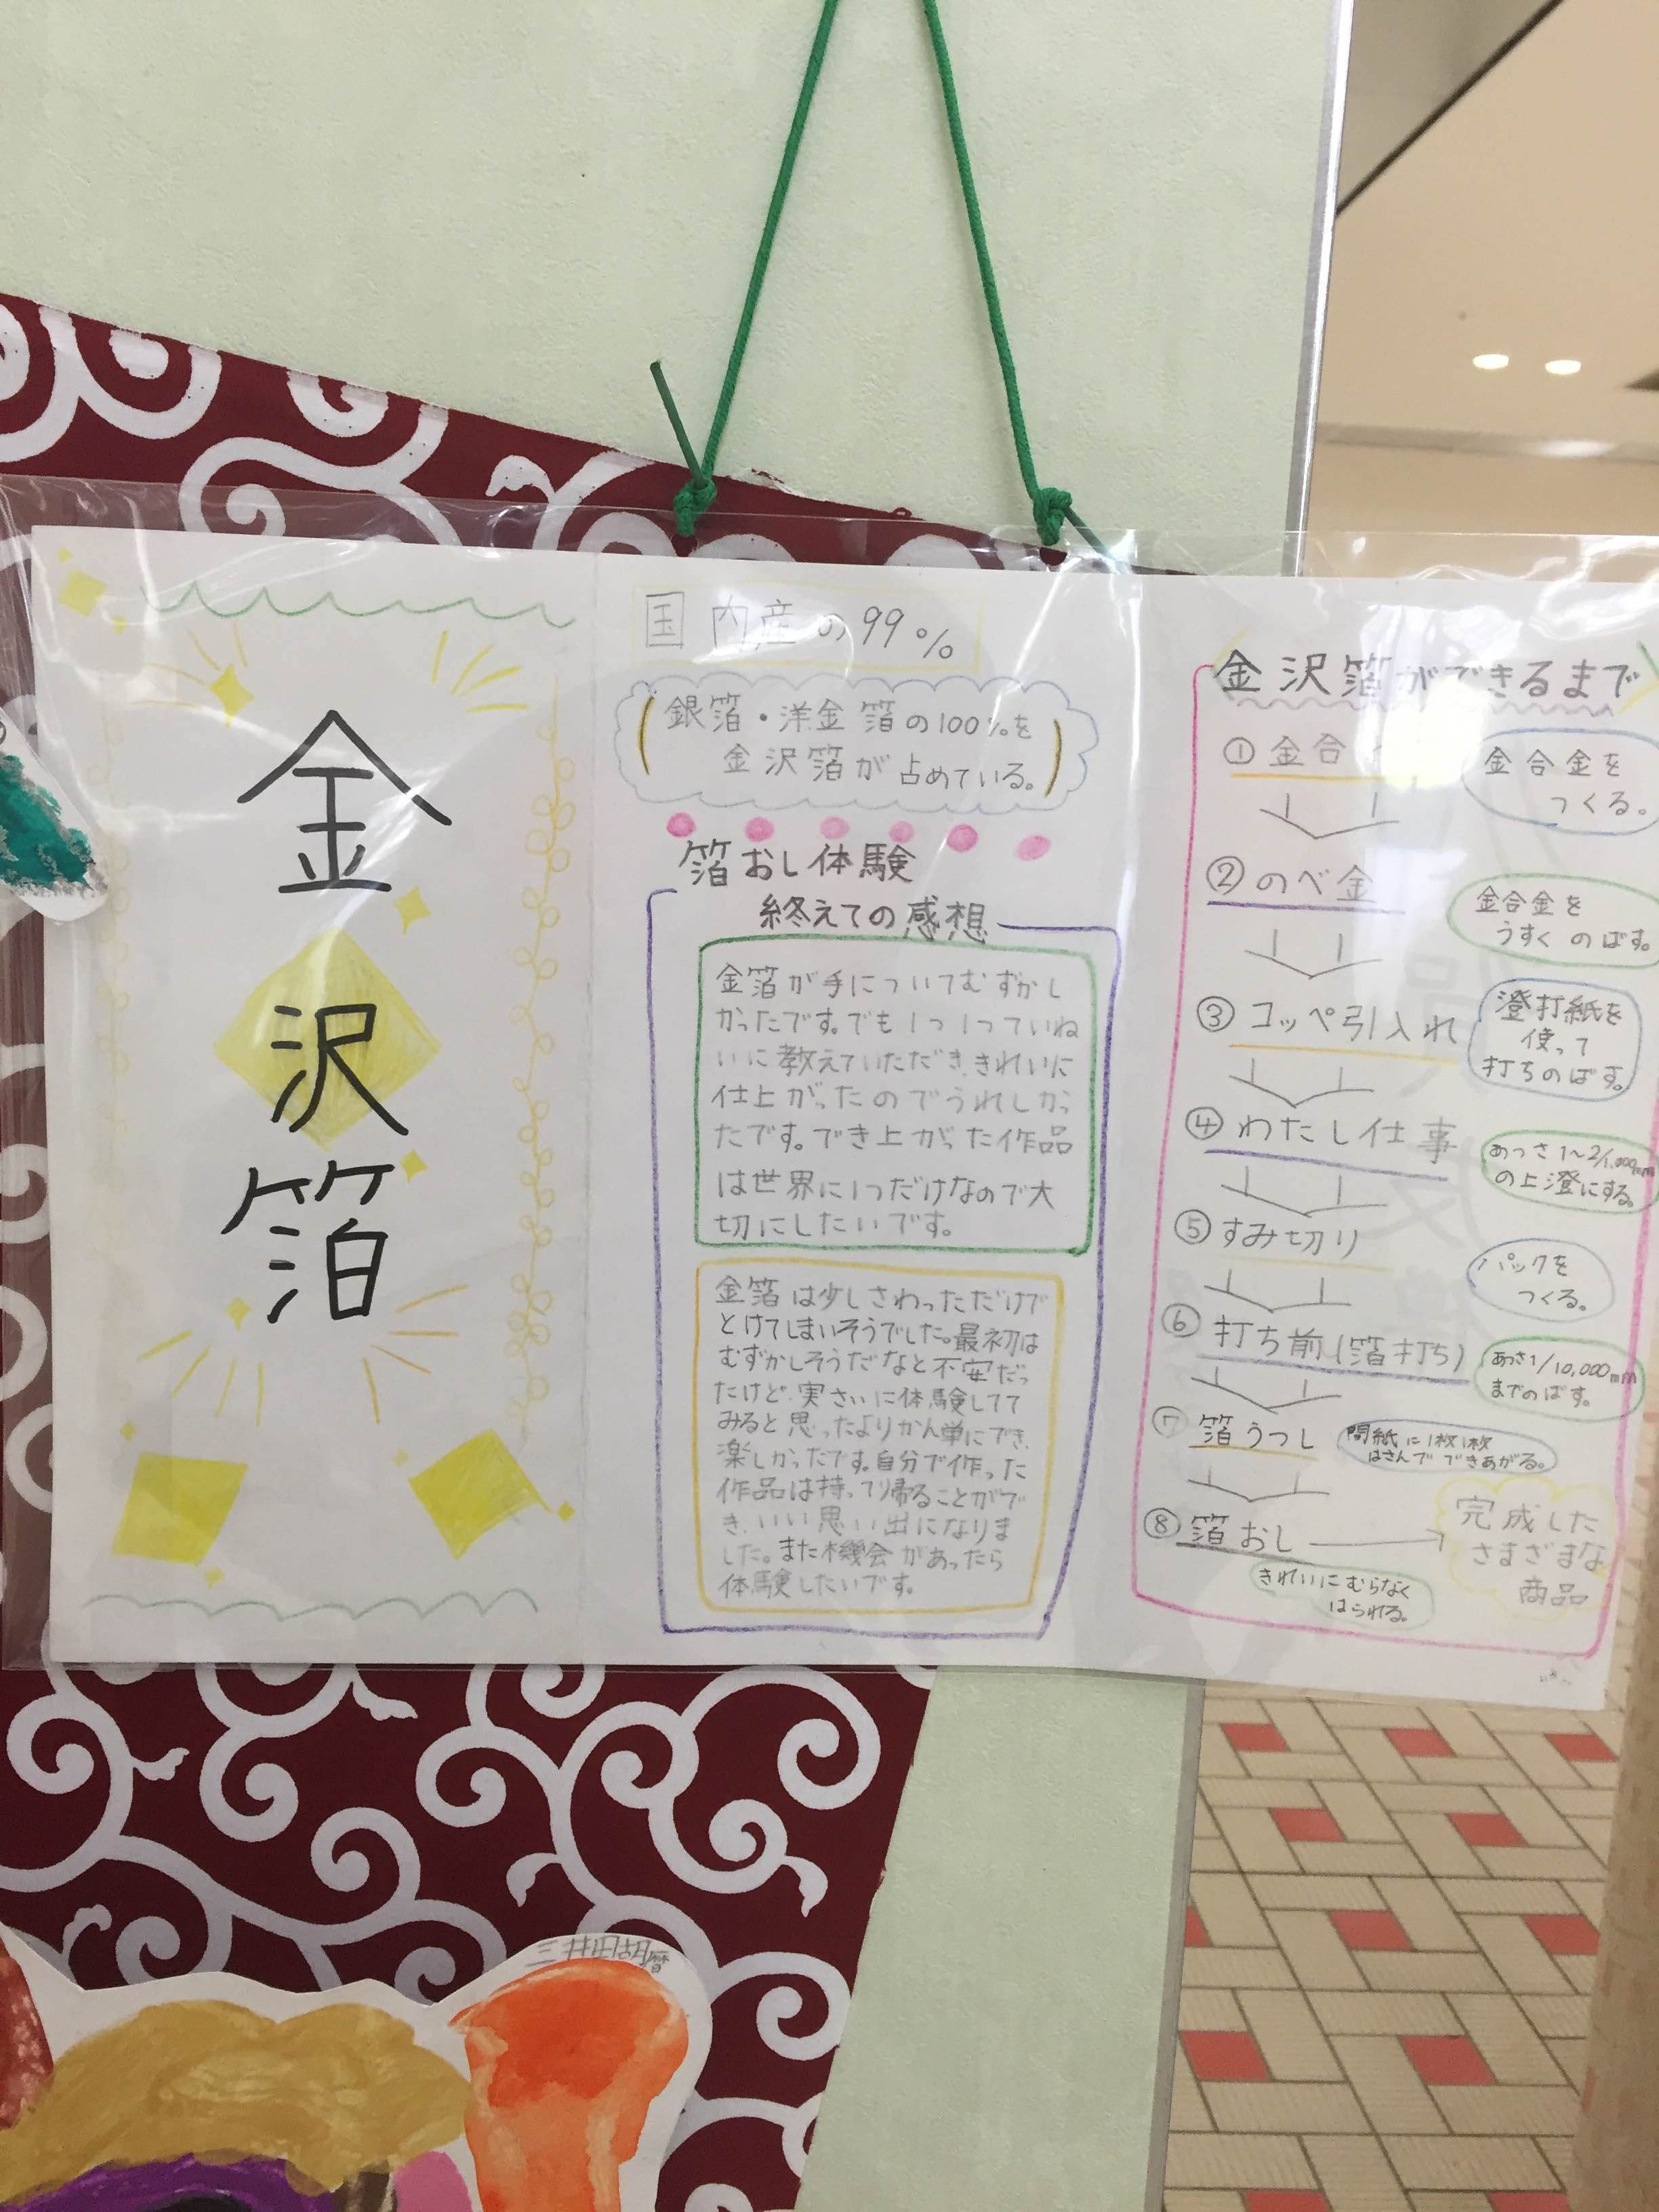 金
沢
箔
国内産の99%
銀箔・洋金箔の100%を
金沢箔が占めている。
箔おし体験
終えての感想
金箔が手についてむずかし
かったです。でも1つ1つていね
いに教えていただき、きれいに
仕上がったのでうれしかっ
たです。でき上がった作品
は世界に1つだけなので大
切にしたいです。
金箔は少しさわっただけで
とけてしまいそうでした。最初は
むずかしそうだなと不安だっ
たけど、実さいに体験してて
みると思ったよりかん単にでき、
楽しかったです。自分で作った
作品は持って帰ることがで
き、いい思い出になりま
した。また機会があったら
体験したいです。
金沢箔ができるまで
①金合
金合金を
つくる。
②のべ金
金合金を
うすくのばす。
③コッペ引入れ
澄打紙を
使って
打ちのばす。
④わたし仕事
あつさ1~2/1,000mm
の上澄にする。
⑤すみ切り
パックを
つくる。
⑥打ち前(箔打ち)
あつさ1/10,000mm
までのばす。
⑦箔うつし
間紙に1枚1枚
はさんでできあがる。
⑧箔おし
きれいにむらなく
はられる。
完成した
さまざまな
商品
三井田胡暦